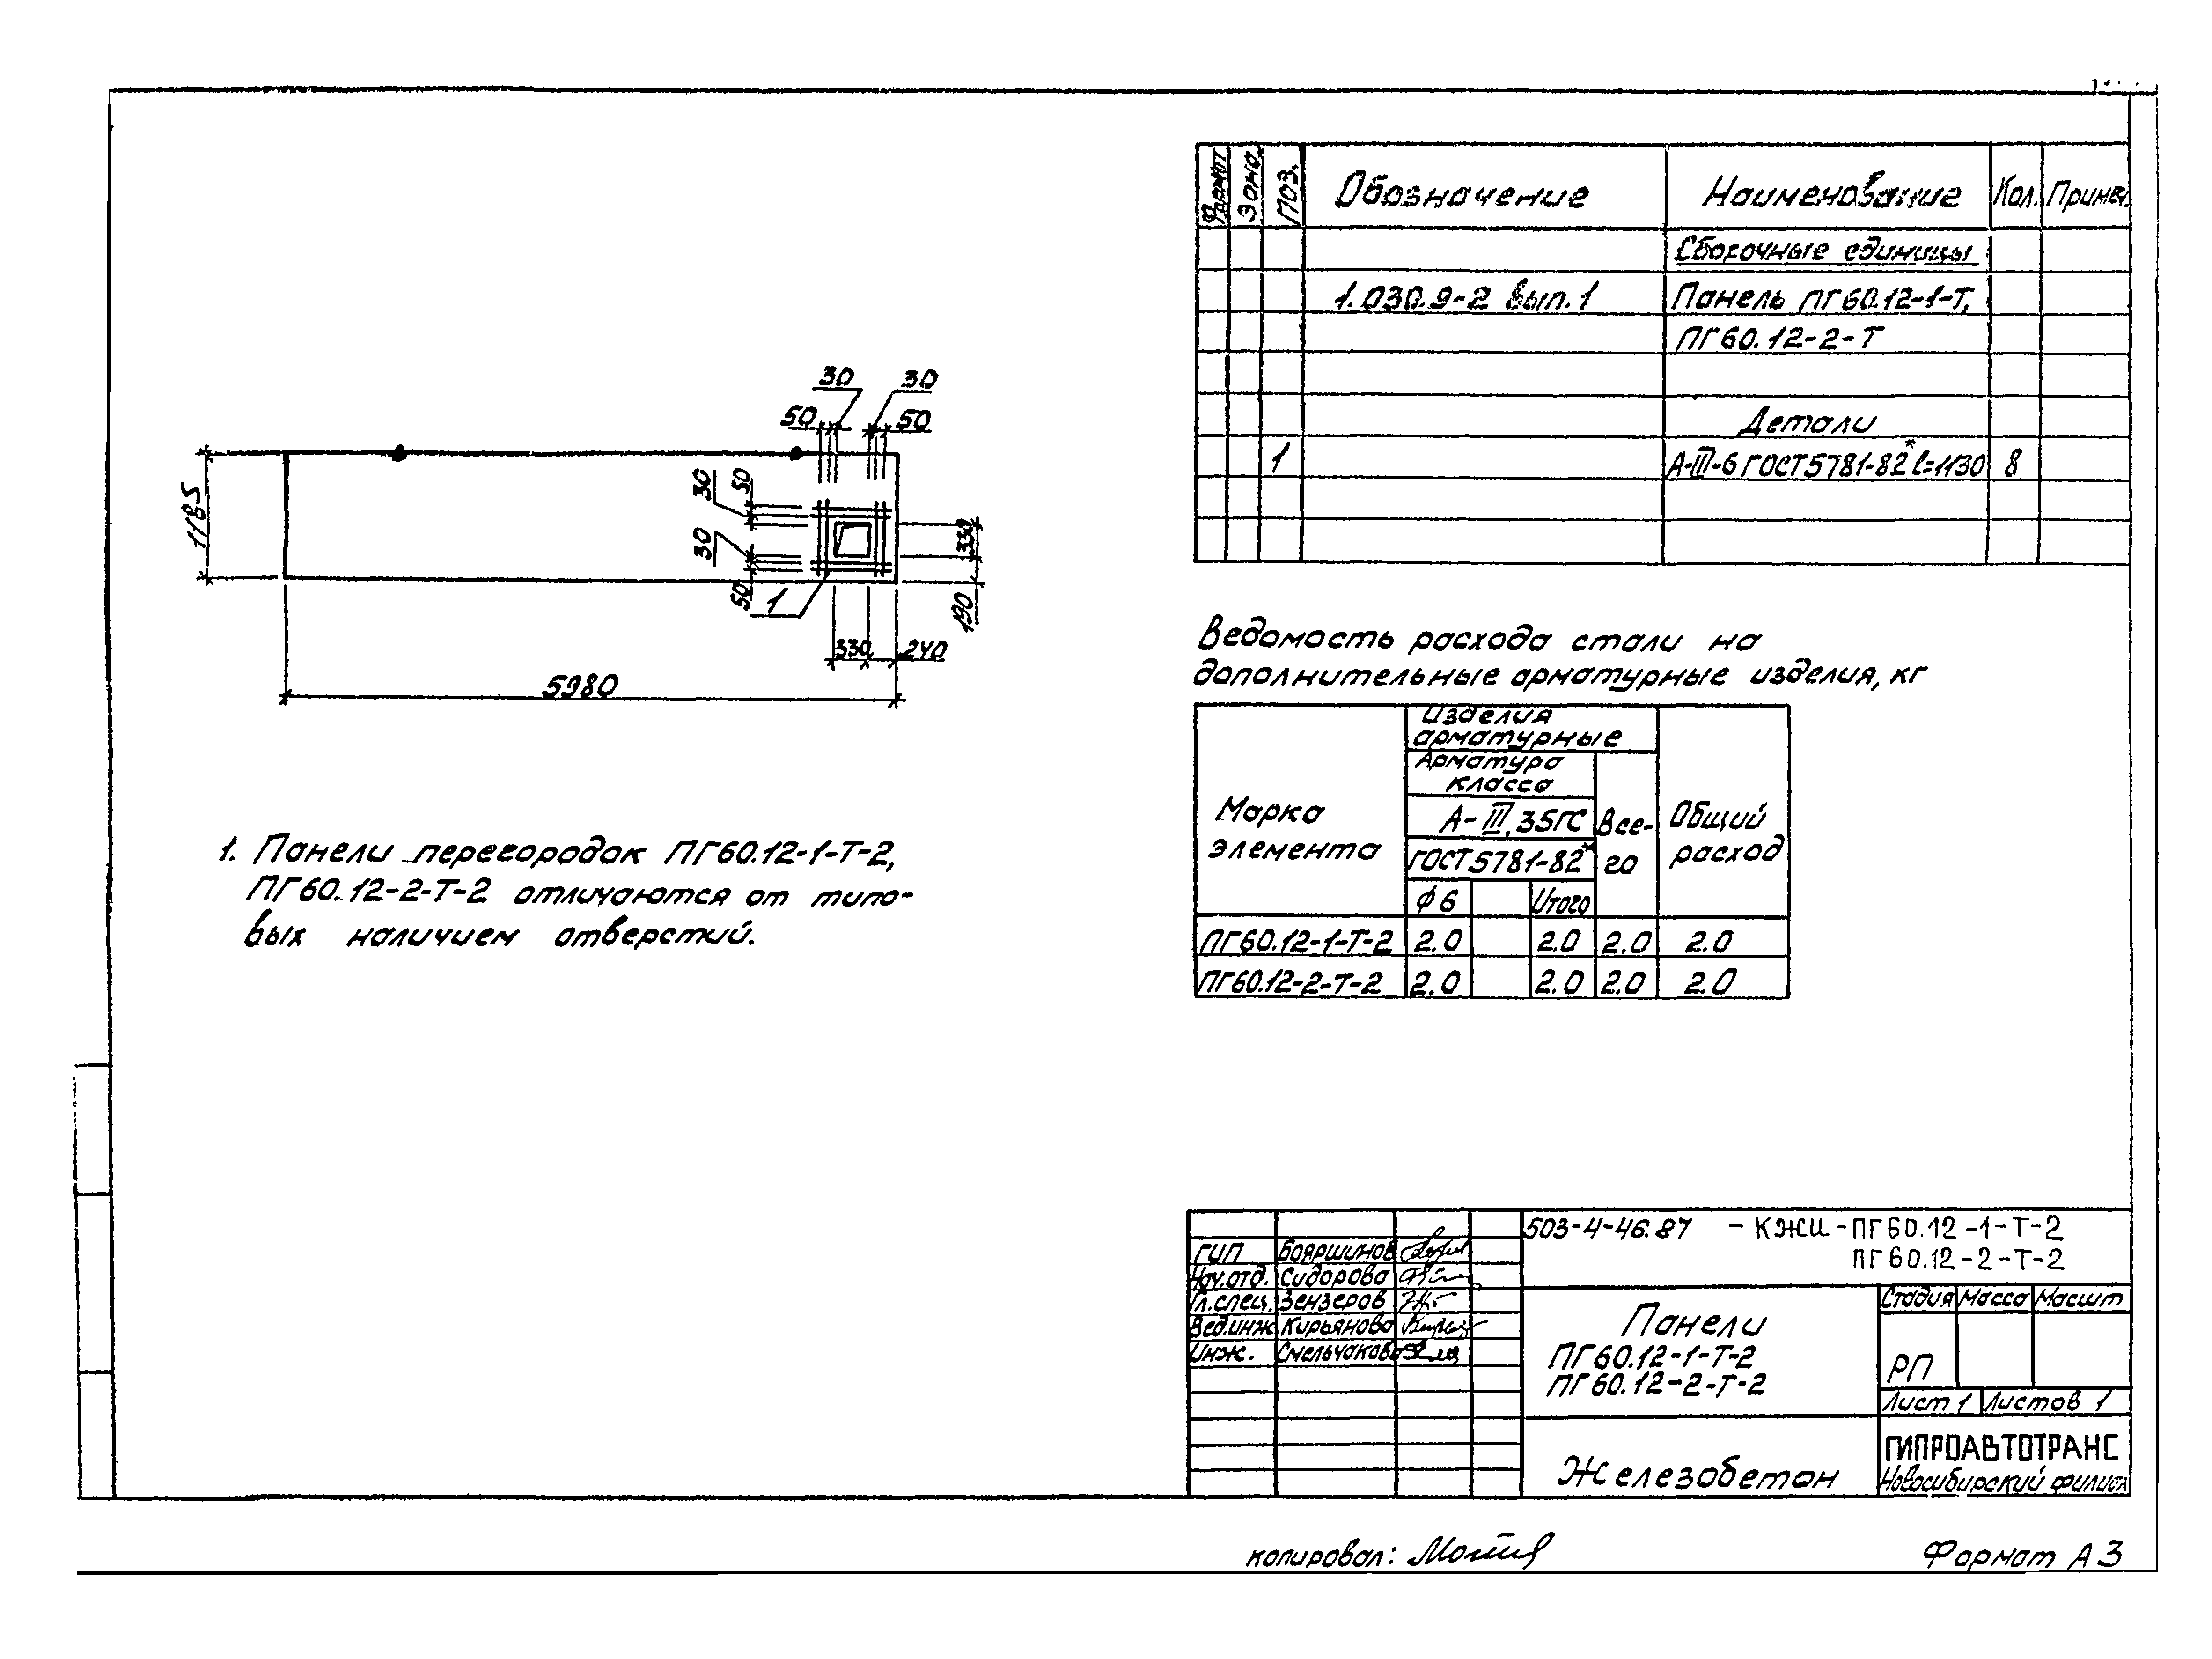 Формат Зона Поз. Обозначение Наименование Кол. Примеч.
Сборочные единицы
1.030.9-2 вып.1 Панель ПГ60.12-1-Т,
ПГ60.12-2-Т
Детали
1 А-III-6 ГОСТ5781-82* l=1130 8
30 30
50 50
1185
30 50
30
50
1
330
190
330 240
5980
1. Панели перегородок ПГ60.12-1-Т-2,
ПГ60.12-2-Т-2 отличаются от типо-
вых наличием отверстий.
Ведомость расхода стали на
дополнительные арматурные изделия, кг
Марка
элемента
Изделия
арматурные
Арматура
класса
А-III, 35ГС
ГОСТ5781-82*
Ф6 Итого
Все-
го
Общий
расход
ПГ60.12-1-Т-2 2.0 2.0 2.0 2.0
ПГ60.12-2-Т-2 2.0 2.0 2.0 2.0
503-4-46.87 -КЖИ-ПГ60.12-1-Т-2
ПГ60.12-2-Т-2
ГИП Бояршинов
Нач.отд. Сидорова
Гл.спец. Зензеров
Вед.инж Кирьянова
Инж. Смельчакова
Панели
ПГ60.12-1-Т-2
ПГ60.12-2-Т-2
Стадия Масса Масшт
РП
Лист 1 Листов 1
Железобетон
ГИПРОАВТОТРАНС
Новосибирский филиал
копировал:
Формат А3